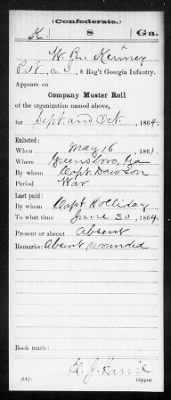 (Confederate.)
K 8 Ga.
W. R. Kenney
Pvt, Co. I, 8 Reg't Georgia Infantry.
Appears on
Company Muster Roll
of the organization named above,
for Sept. and Oct., 1864.
Enlisted:
When May 16, 1861.
Where Greensboro, Ga
By whom Capt Dawson
Period War
Last paid:
By whom Capt Holliday
To what time June 30, 1864.
Present or absent Absent
Remarks: Absent wounded
Book mark:
(642) Copyist.